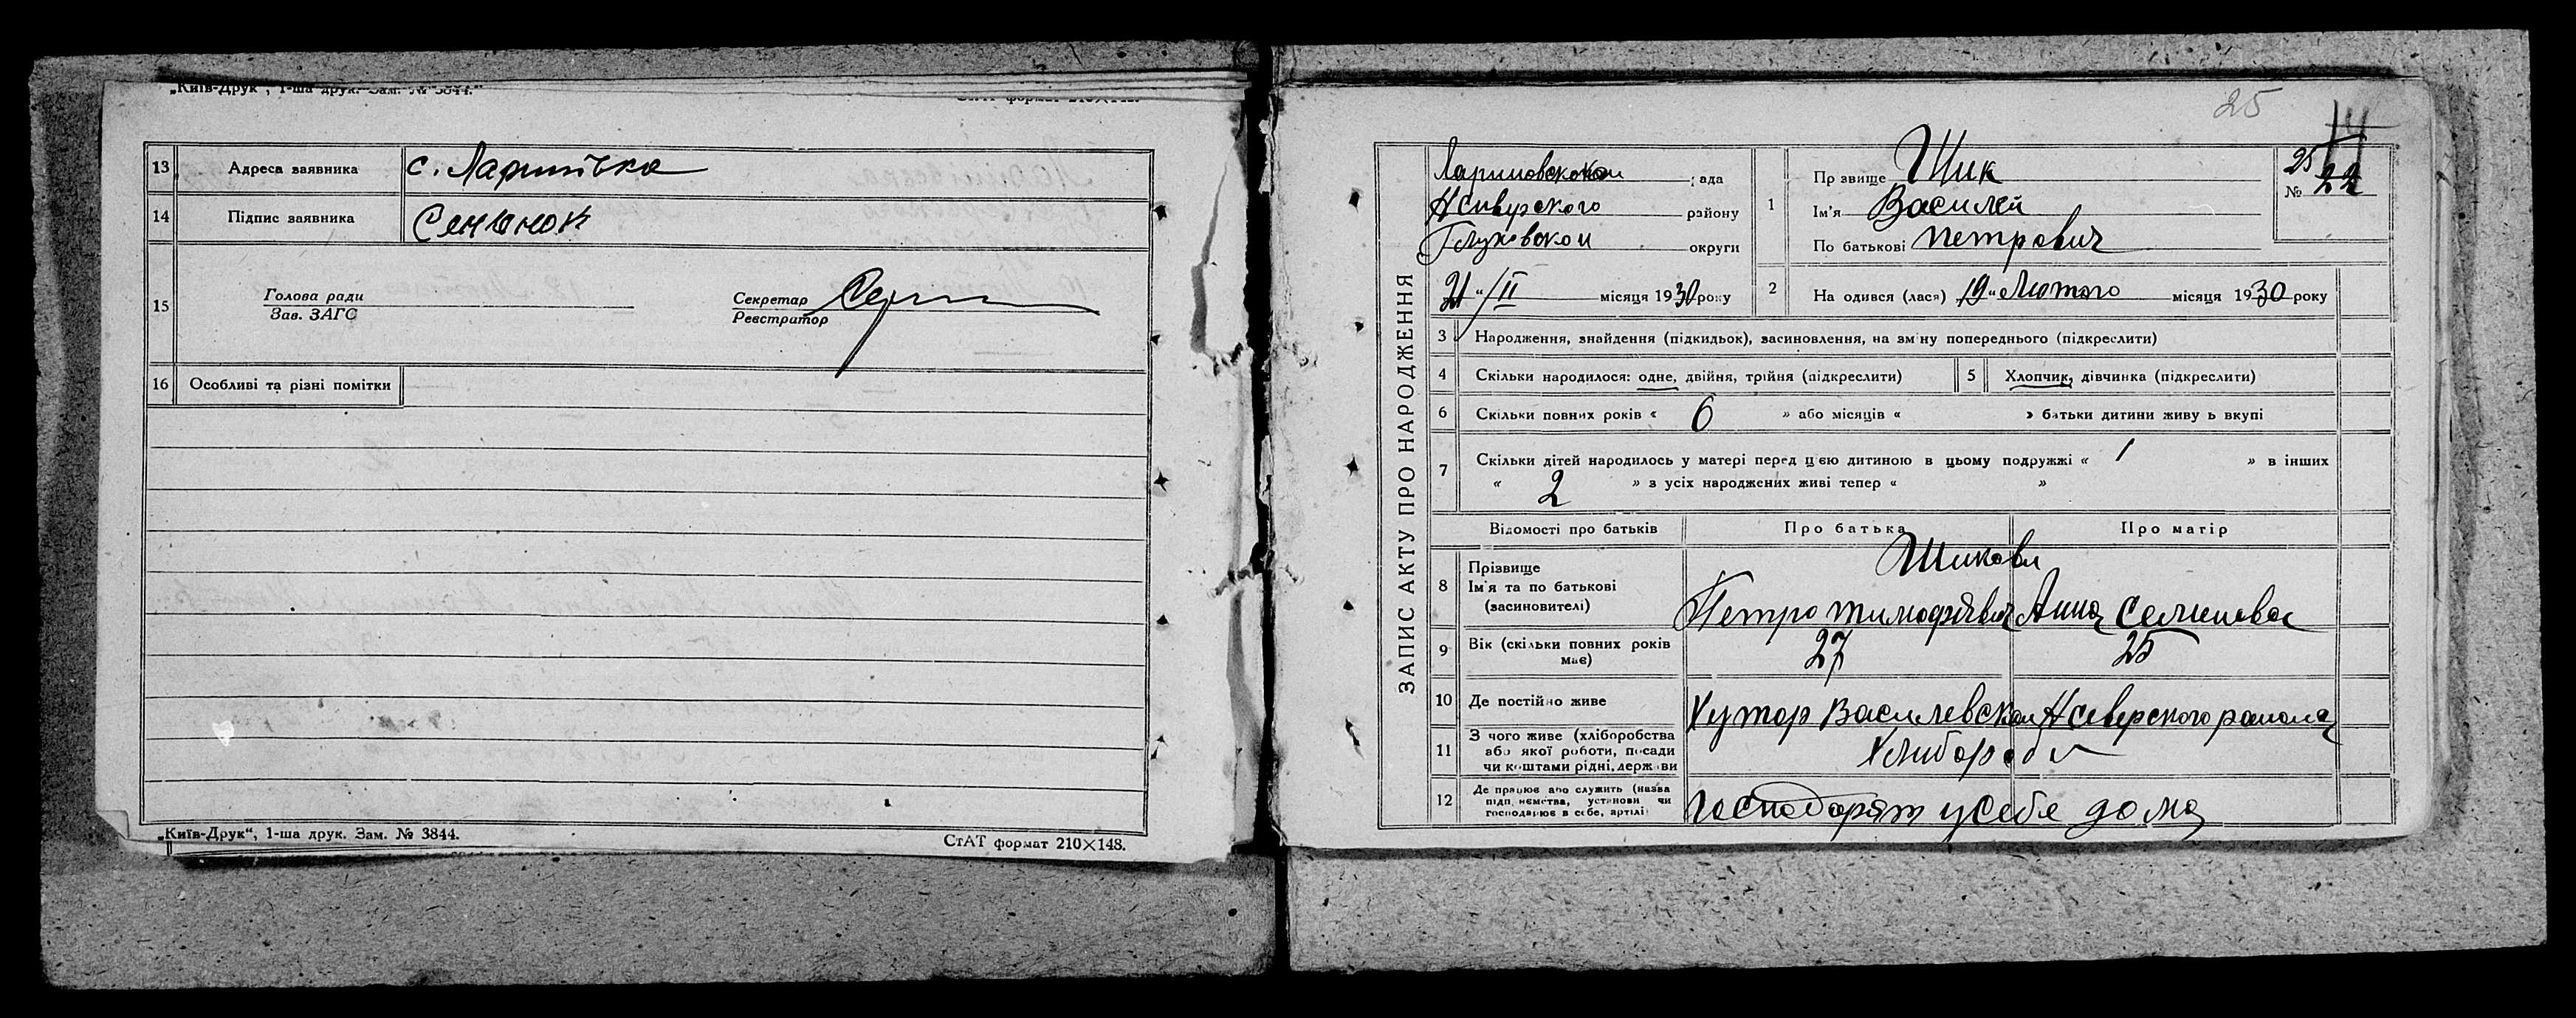 „Київ-Друк", 1-ша друк. Зам. № 3844."
13 Адреса заявника с. Ларинівка
14 Підпис заявника Сенчнок
15 Голова ради
Зав. ЗАГС
Секретар
Реєстратор
16 Особливі та різні помітки
„Київ-Друк“, 1-ша друк. Зам. № 3844.
СтАТ формат 210×148.
25
ЗАПИС АКТУ ПРО НАРОДЖЕННЯ
Лариновской рада
Нсиверского району
Глуховской округи
21 "/II місяця 1930 року
1 Прізвище Шик
Ім'я Василей
По батькові Петрович
25
№ 22
2 На одився (лася) 19 „ Лютого місяця 1930 року
3 Народження, знайдення (підкидьок), засиновлення, на зміну попереднього (підкреслити)
4 Скільки народилося: одне, двійня, трійня (підкреслити)
5 Хлопчик, дівчинка (підкреслити)
6 Скільки повних років « 6 » або місяців « » батьки дитини живуть вкупі
7 Скільки дітей народилось у матері перед цією дитиною в цьому подружжі « 1 » в інших
« 2 » з усіх народжених живі тепер « »
Відомості про батьків Про батька Про матір
8 Прізвище
Ім'я та по батькові
(засиновителі)
Шикови
Петро Тимофійович Анна Семеновна
9 Вік (скільки повних років має) 27 25
10 Де постійно живе Хутор Василевской Нсеверского района
11 З чого живе (хліборобства
або якої роботи, посади
чи коштами рідні, держави
Хлибороби
12 Де працює або служить (назва
підприємства, установи чи
господарює в себе, артілі)
Господорят у себе дома